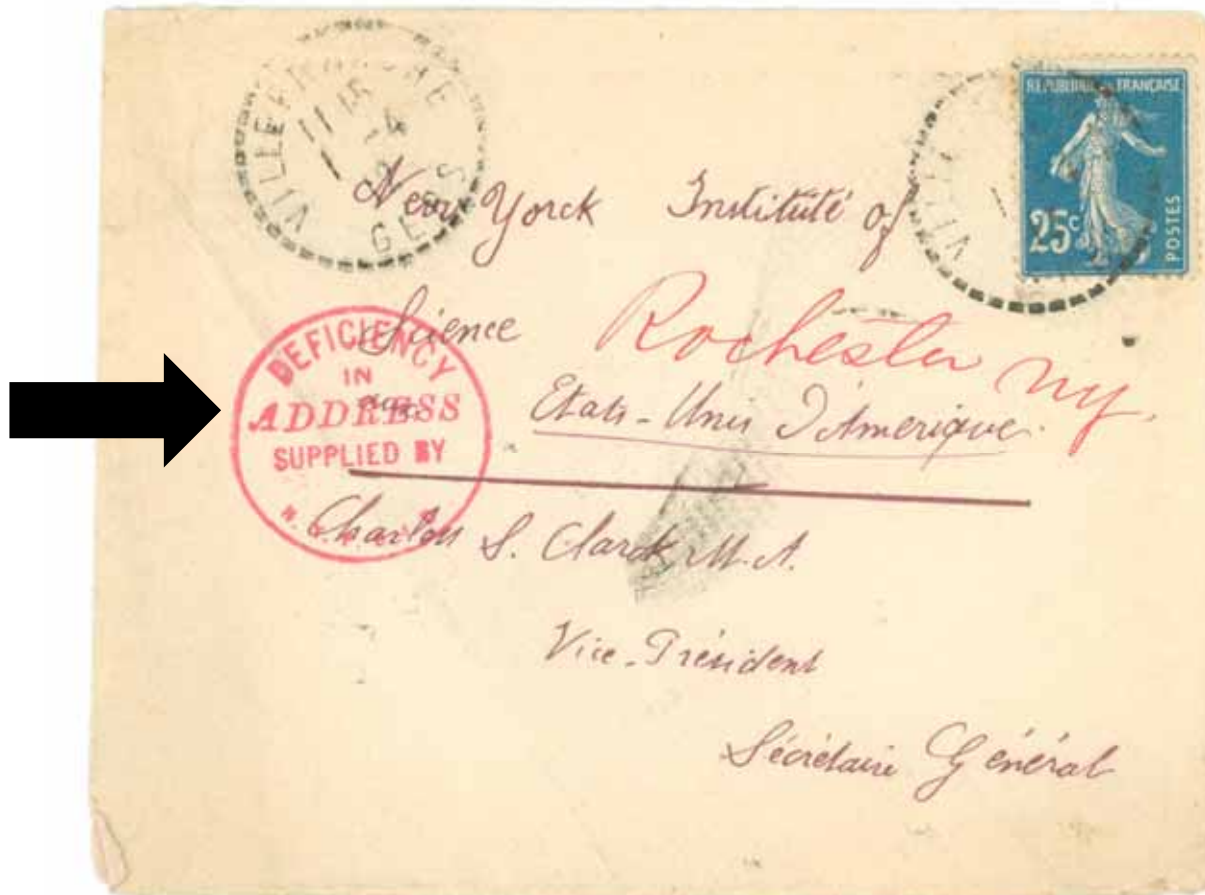 VILLEFRANCHE
11 15
-4
GERS
RÉPUBLIQUE FRANÇAISE
25c
POSTES
New Yorck Institute of
Science Rochester NY.
Etats-Unis d'Amerique.
DEFICIENCY
IN
ADDRESS
SUPPLIED BY
Charles S. Clarck M.A.
Vice-Président
Sécrétaire Général